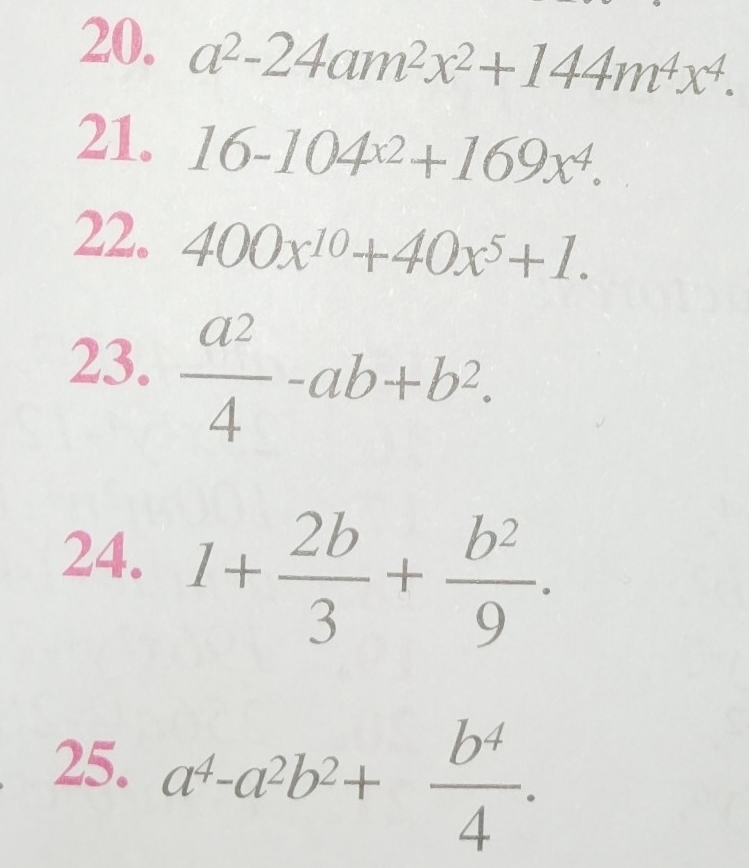 20. a²-24am²x²+144m⁴x⁴.
21. 16-104ˣ²+169x⁴.
22. 400x¹⁰+40x⁵+1.
23. a²/4 -ab+b².
24. 1+ 2b/3 + b²/9.
25. a⁴-a²b²+ b⁴/4.